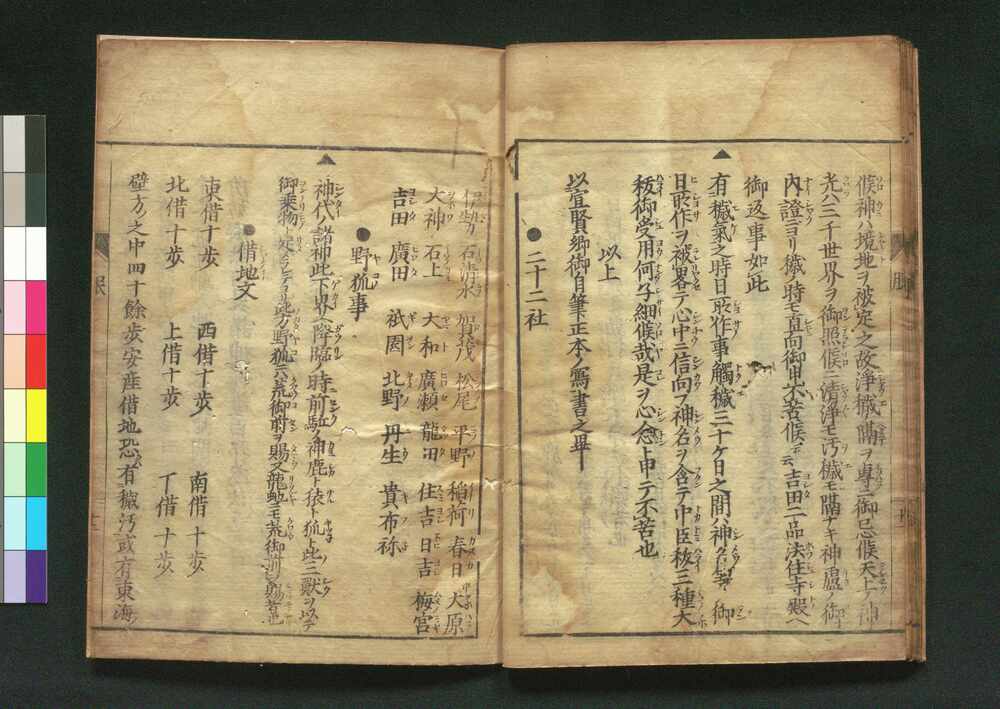 候神ハ境地ヲ被定之故浄穢隔ヲ専一御忌候天上ノ神
光ハ三千世界ヲ御照候ニ清浄モ汚穢モ隔ナキ神慮ノ御
内證ヨリ穢時モ直向御申不苦候云云吉田二品法住寺殿ヘ
御返事如此
▲有穢氣之時日所作事觸穢三十ケ日之間ハ神名等御
日所作ヲ被畧テ心中ニ信向フ神名ヲ含テ中臣秡三種大
秡御受用何子細候哉是ヲ心念ト申テ不苦也
以上
以宜賢卿御自筆正本寫書之畢
●二十二社
伊勢 石清水 賀茂 松尾 平野 稲荷 春日 大原
大神 石上 大和 廣瀬 龍田 住吉 日吉 梅宮
吉田 廣田 祇園 北野 丹生 貴布祢
●野狐事
▲神代ノ諸神此下界ヘ降臨ノ時前駈ノ神鹿ト猿ト狐ト此三獣ヲ以テ
御乗物ト定
●借地文
東借十歩 西借十歩 南借十歩
北借十歩 上借十歩 下借十歩
壁方之中四十餘歩安産借地恐有穢汚或有東海